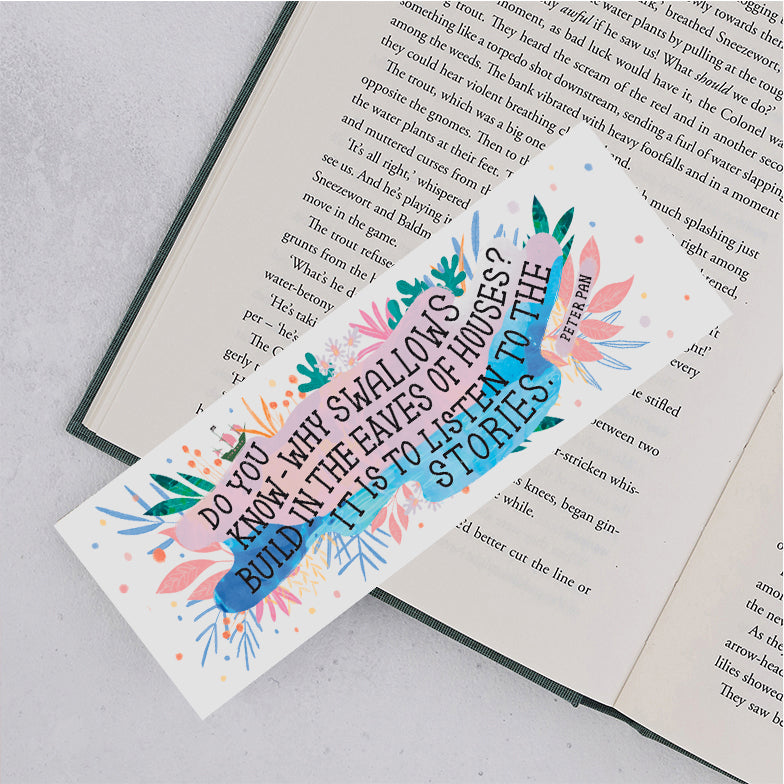 something like a torpedo shot downstream, sending a furl of water slapping
among the weeds. The bank vibrated with heavy footfalls and in a moment
they could hear violent breathing
The trout, which was a big one
opposite the gnomes. Then to th
the water plants at their feet. T
and muttered curses from th
'It's all right,' whispered
see us. And he's playing i
Sneezewort and Baldm
move in the game.
The trout refuse
grunts from the
'What's he d
water-betony
'He's taki
per – 'he's
The C
gerly t
'He
nd.
h much splashing just
right among
ened,
ht!'
every
he stifled
between two
r-stricken whis-
s knees, began gin-
while.
'd better cut the line or
DO YOU
KNOW - WHY SWALLOWS
BUILD IN THE EAVES OF HOUSES?
IT IS TO LISTEN TO THE
STORIES.
PETER PAN
amon
the new
As they
arrow-head
lilies showed
They saw be